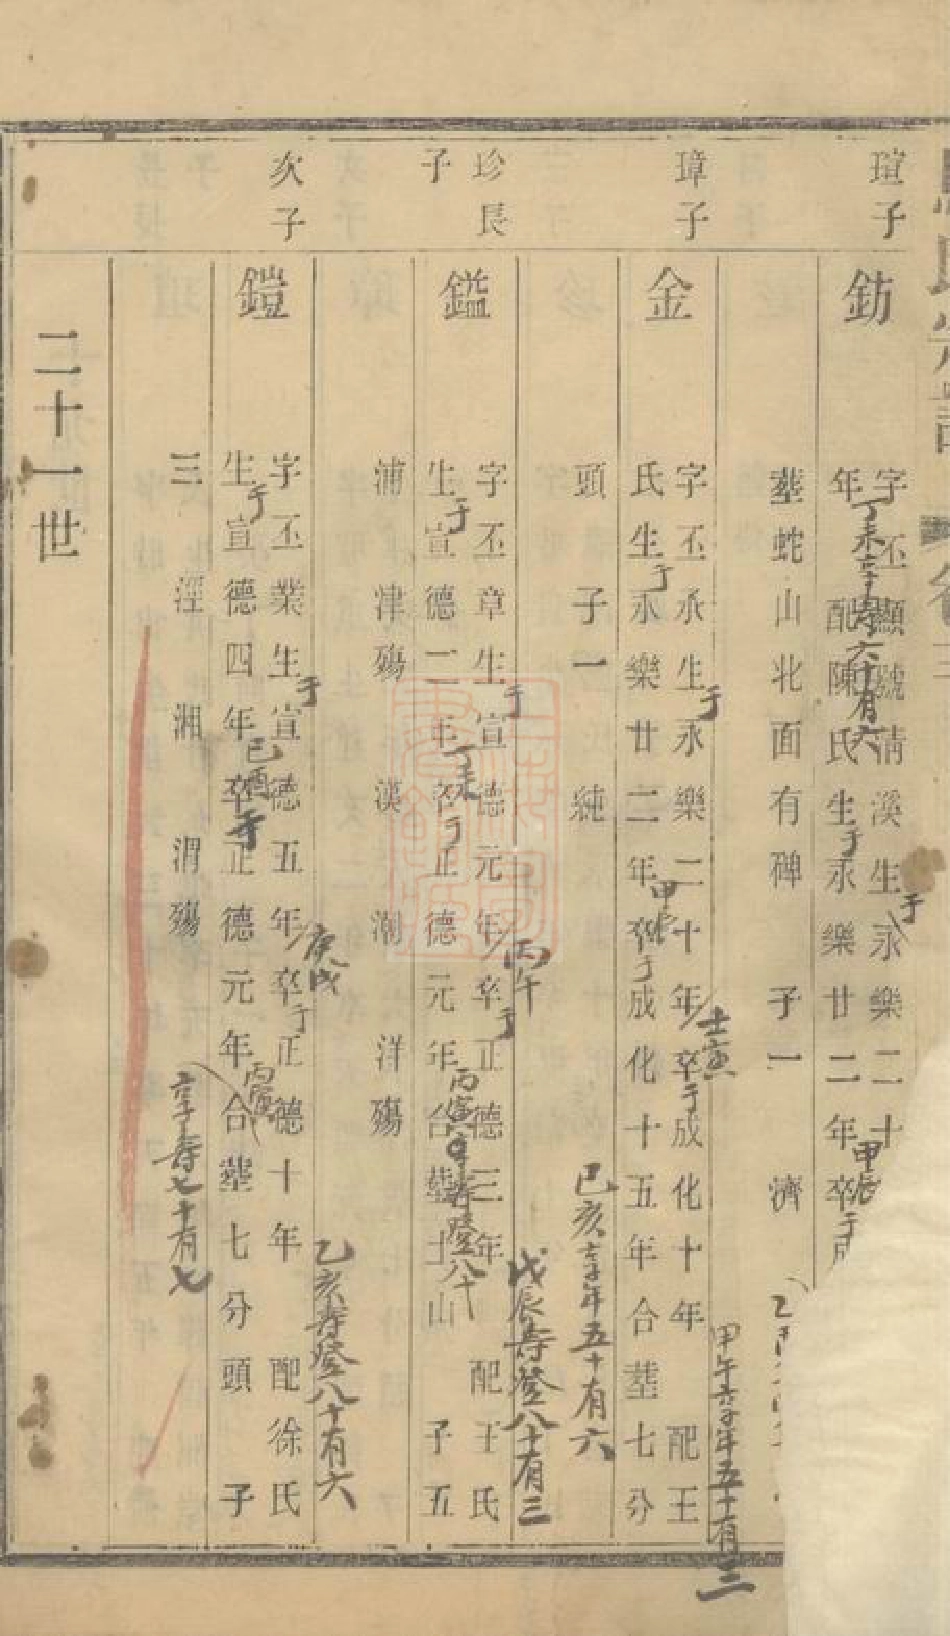 瑄子
鈁
字丕顯號清溪生于永樂二十
年丁未享壽六十有六配陳氏生于永樂廿二年甲辰卒于
塟蛇山北面有碑 子一 濟
璋子
金
字丕承生于永樂二十年壬寅卒于成化十年甲午享年五十有三配王
氏生于永樂廿二年甲辰卒于成化十五年己亥享年五十有六合塟七分
頭 子一 純
珍長子
鎰
字丕章生于宣德元年丙午卒于正德三年戊辰壽登八十有三配王氏
生于宣德二年丁未卒于正德元年丙寅壽登八十合塟土山 子五
浦 津殤 漢 潮 洋殤
次子
鎧
字丕業生于宣德五年庚戌卒于正德十年乙亥壽登八十有六配徐氏
生于宣德四年己酉卒于正德元年丙寅享壽七十有七合塟七分頭 子
三 涇 湘 渭殤
二十一世